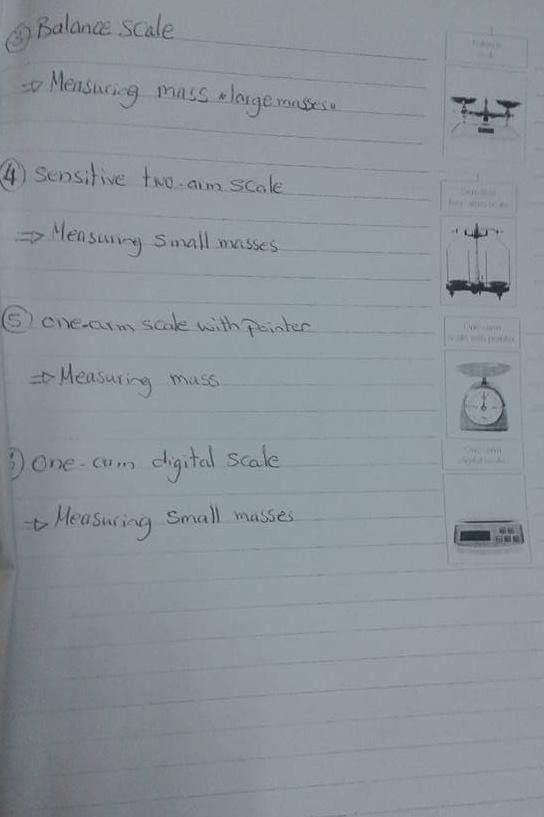 ③ Balance scale
Balance
scale
⇒ Measuring mass "large masses"
④ Sensitive two-arm scale
Sensitive
two-arm scale
⇒ Measuring small masses
⑤ one-arm scale with pointer
One-arm
scale with pointer
⇒ Measuring mass
One-arm digital scale
One-arm
digital scale
⇒ Measuring small masses